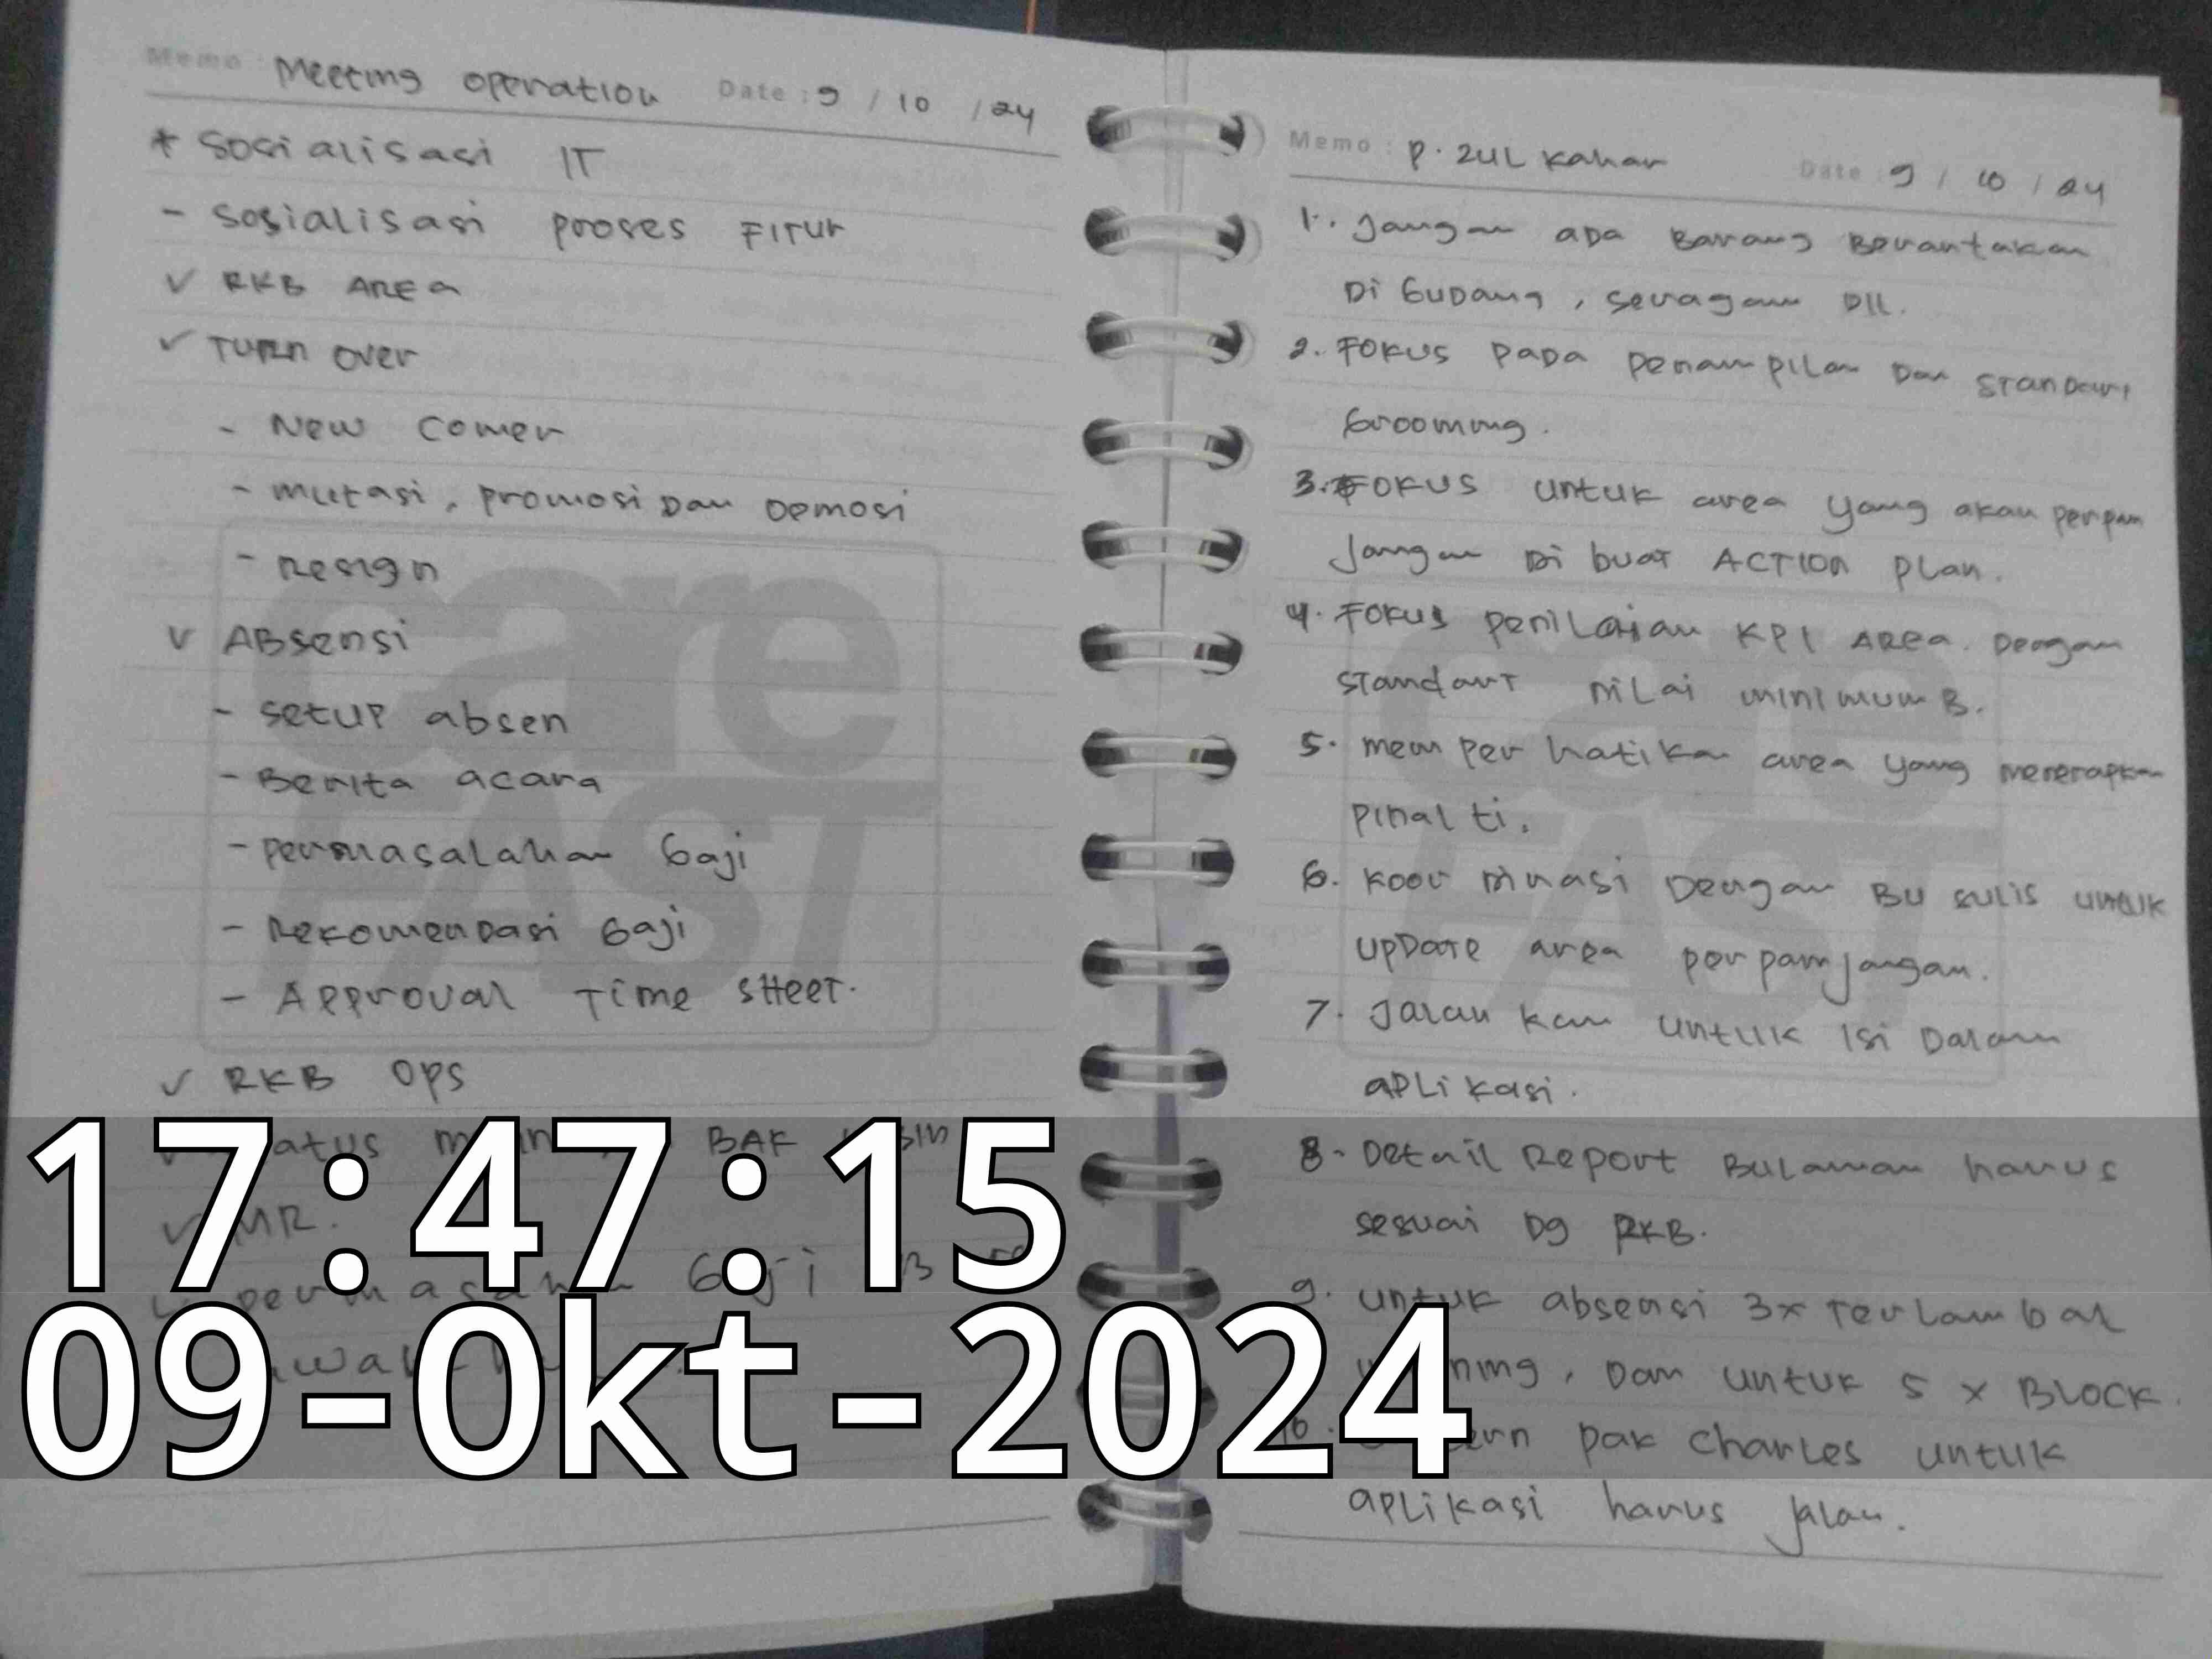 Memo : Meeting operation Date : 9 / 10 / 24
* Sosialisasi IT
- Sosialisasi proses Fitur
✓ RKB Area
✓ Turn over
- New Comer
- mutasi, promosi Dan Demosi
- Resign
✓ ABsensi
- setup absen
- Berita acara
- permasalahan Gaji
- Rekomendasi Gaji
- Approval Time SHeet.
✓ RKB OPS
BAK
Gaji
Memo : P. Zul kahar Date : 9 / 10 / 24
1. Jangan aDa Barang Berantakan
Di GuDang, seragam Dll.
2. FOKUS paDa Penampilan Dan STanDart
Grooming.
3. FOKUS untuk area yang akan perpan
Jangan Di buat ACTION Plan.
4. FOKUS penilaian KPI Area. Dengan
standart nilai minimum B.
5. memperhatikan area yang menerapkan
pinalti.
6. koordinasi Dengan Bu sulis untuk
upDate area perpamjangan.
7. Jalan kan untuk Isi Dalam
aplikasi.
8. Detail Report Bulanan harus
sesuai Dg RKB.
9. untuk absensi 3x Terlambat
Dan untuk 5 x BLOCK.
10. pak Charles untuk
aplikasi harus jalan.
care
FAST
care
FAST
17:47:15
09-Okt-2024